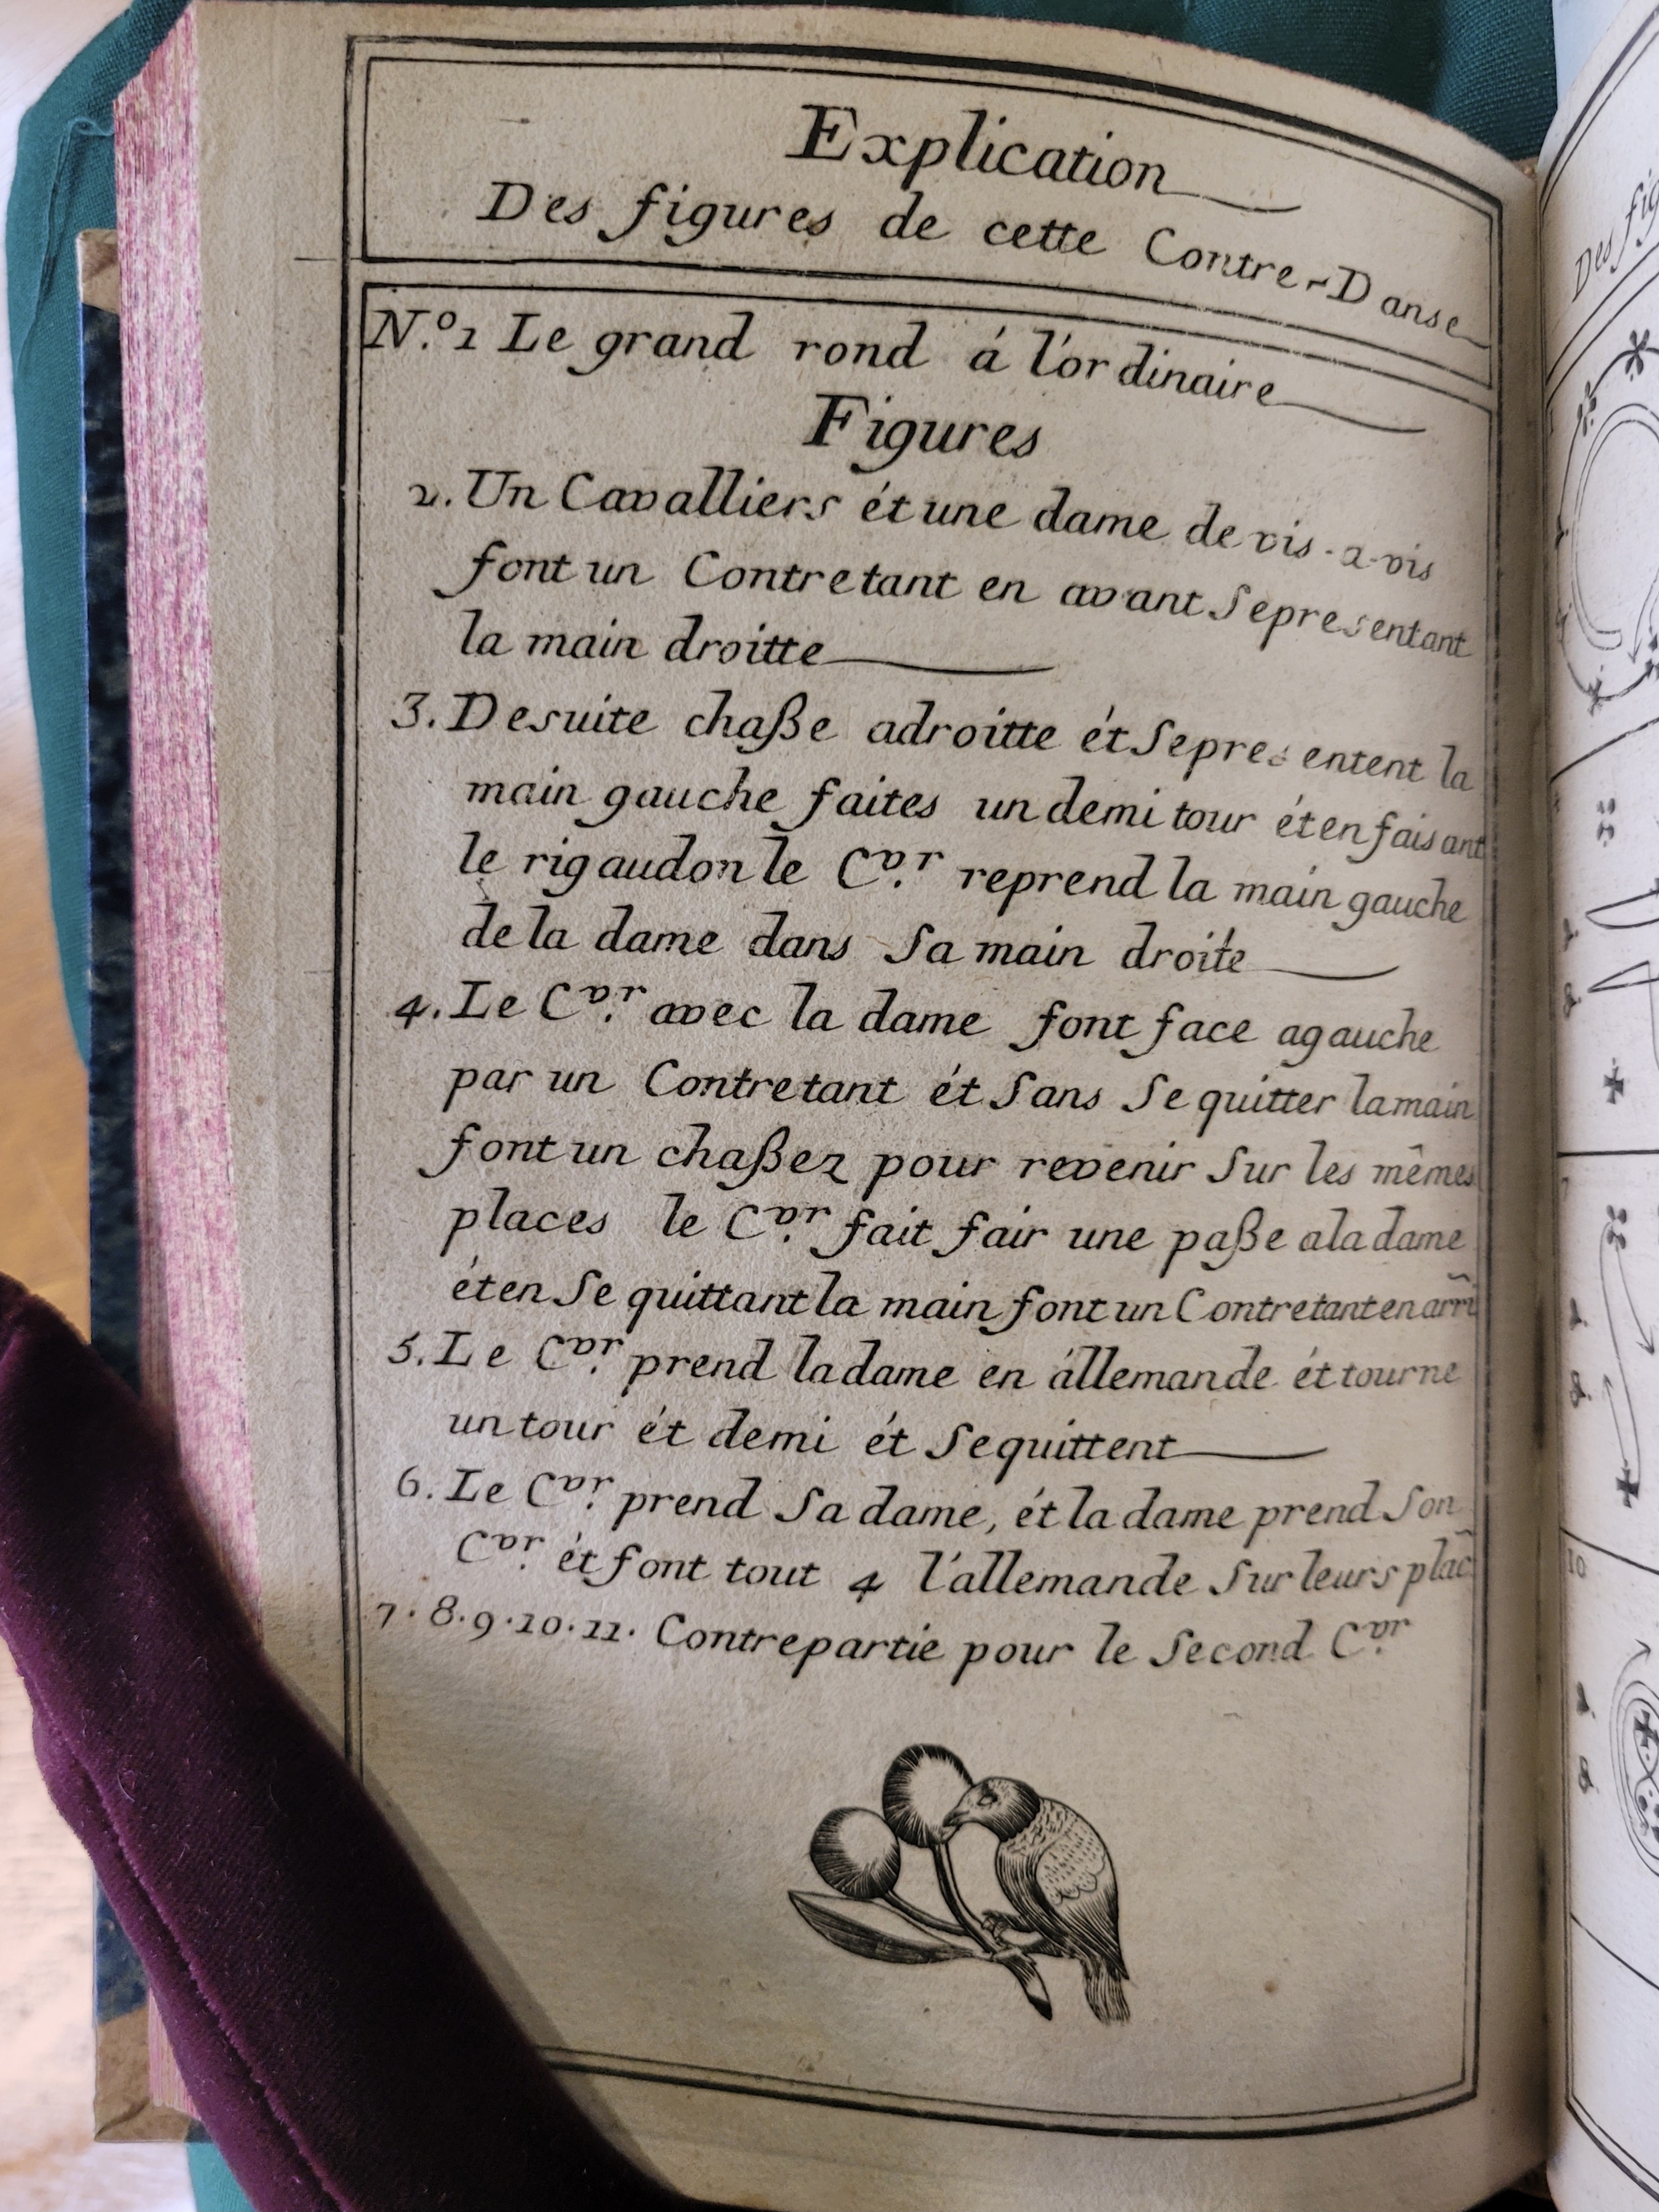 Explication
Des figures de cette Contre-Danse
N.º 1 Le grand rond á l'ordinaire
Figures
2. Un Cavalliers ét une dame de vis-a-vis
font un Contretant en avant Se presentant
la main droitte
3. De suite chaße a droitte ét Se presentent la
main gauche faites un demi tour ét en faisant
le rigaudon le C.vr reprend la main gauche
de la dame dans Sa main droite
4. Le C.vr avec la dame font face a gauche
par un Contretant ét Sans Se quitter la main
font un chaßez pour revenir Sur les mêmes
places le C.vr fait fair une paße a la dame
ét en Se quittant la main font un Contretant en arri
5. Le C.vr prend la dame en állemande ét tourne
un tour ét demi ét Se quittent
6. Le C.vr prend Sa dame, ét la dame prend Son
C.vr ét font tout 4 l'allemande Sur leurs plac̃
7. 8. 9. 10. 11. Contrepartie pour le Second C.vr
Des fig
10